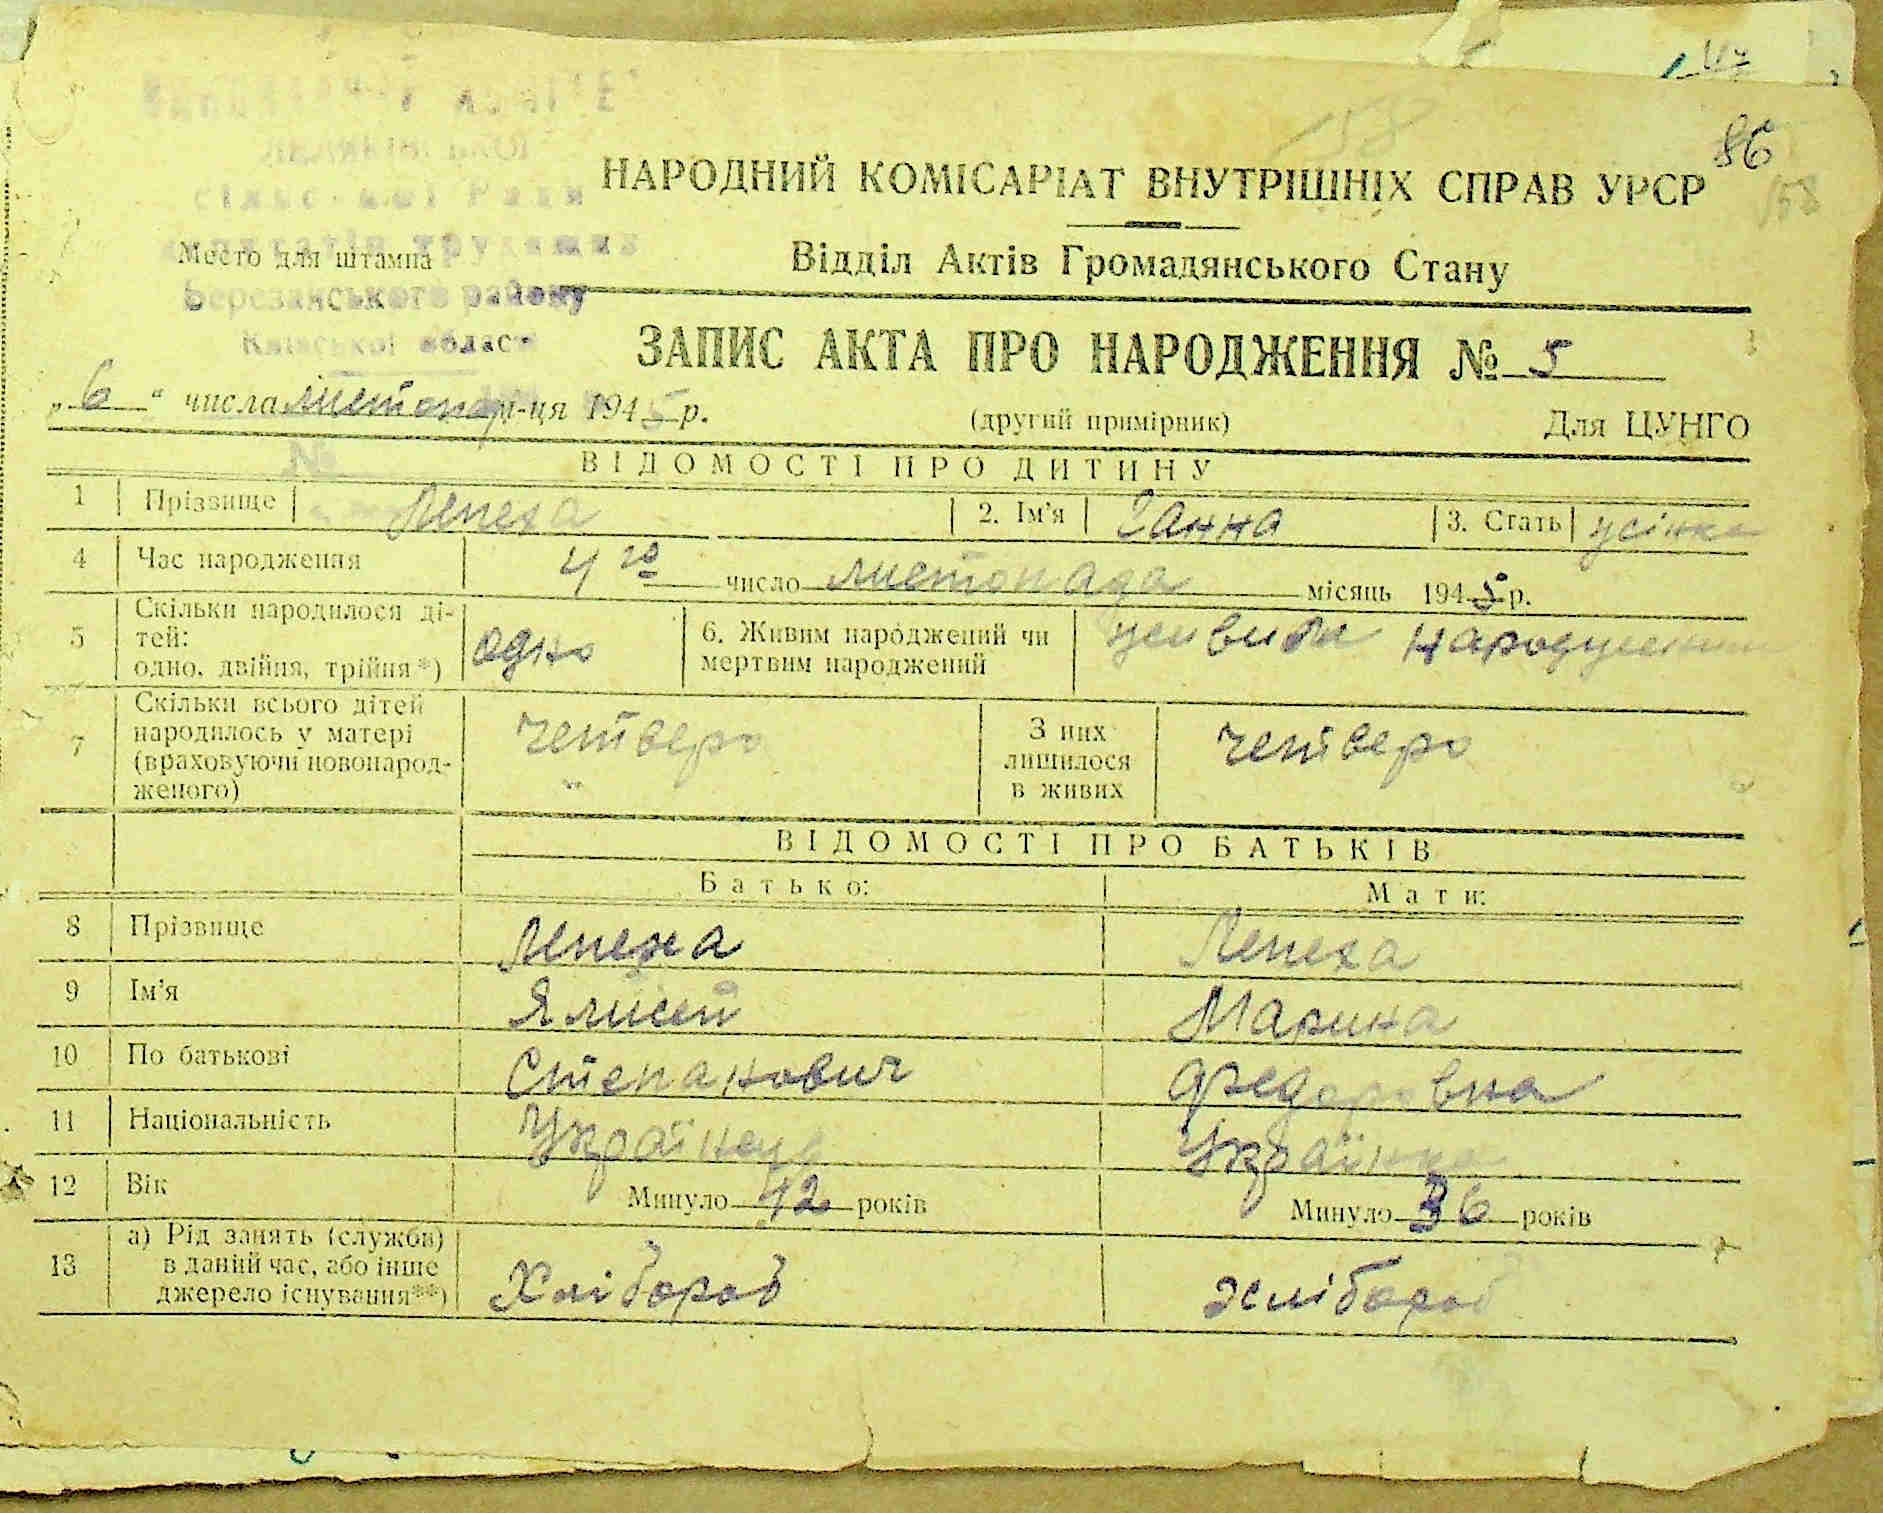 47
86
158
158
НАРОДНИЙ КОМІСАРІАТ ВНУТРІШНІХ СПРАВ УРСР
сільської Ради
депутатів трудящих
Место для штампа
Відділ Актів Громадянського Стану
Березанського району
Київської області
ЗАПИС АКТА ПРО НАРОДЖЕННЯ № 5
„6“ числа листопад м-ця 1945 р.
(другий примірник)
Для ЦУНГО
№
ВІДОМОСТІ ПРО ДИТИНУ
1 Прізвище Лепеха 2. Ім'я Ганна 3. Стать жінка
4 Час народження 4го число листопада місяць 1945 р.
5 Скільки народилося ді-
тей:
одно, двійня, трійня*) одно
6. Живим народжений чи
мертвим народжений
живим народженим
7 Скільки всього дітей
народилось у матері
(враховуючи новонарод-
женого)
четверо
З них
лишилося
в живих
четверо
ВІДОМОСТІ ПРО БАТЬКІВ
Батько: Мати:
8 Прізвище Лепеха Лепеха
9 Ім'я Ялисей Марина
10 По батькові Степанович Федоровна
11 Національність Українець Українка
12 Вік Минуло 42 років Минуло 36 років
13 а) Рід занять (служби)
в даний час, або інше
джерело існування**)
Хлібороб хлібороб